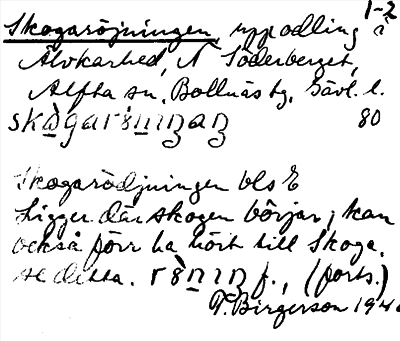 1-2
Skogaröjningen, uppodling i
Älvkarhed, N Söderberget,
Alfta sn, Bollnäs tg, Gävl. l.
80
Skogarödjningen bls E
Ligger där skogen börjar, kan
också förr ha hört till Skoga,
se detta. f., (forts.)
T. Birgerson 194